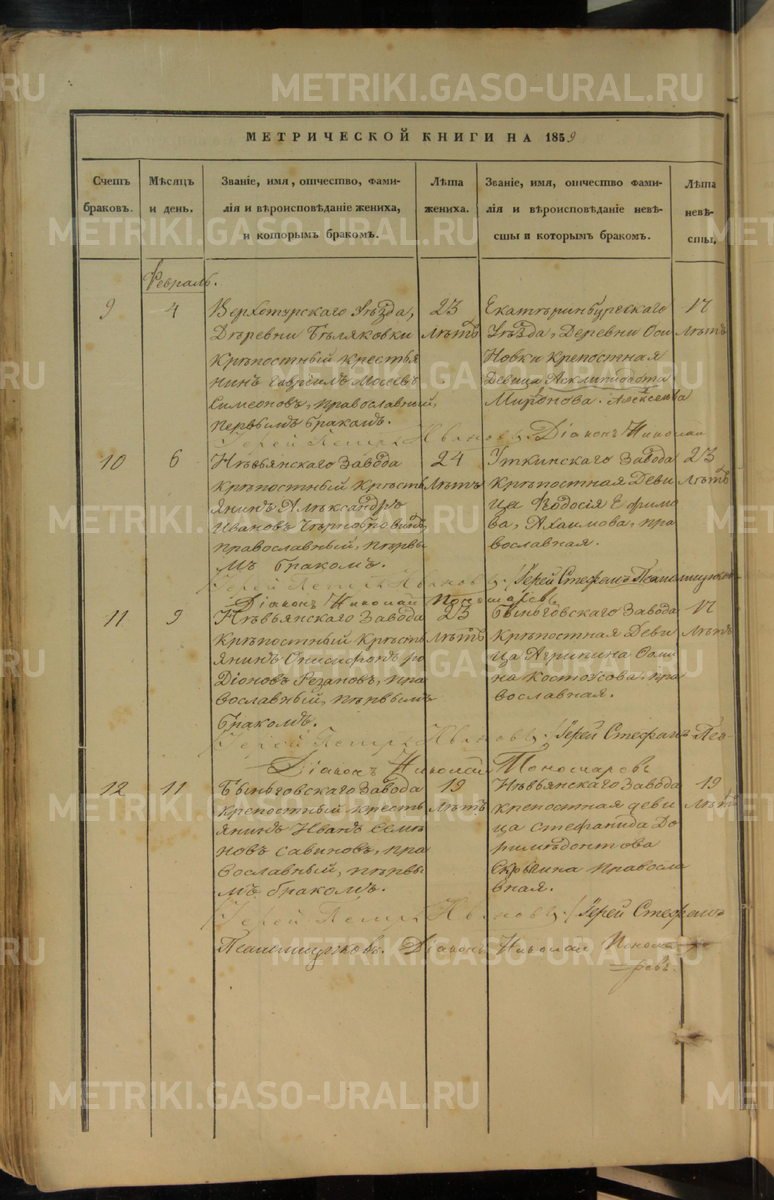 METRIKI.GASO-URAL.RU
МЕТРИЧЕСКОЙ КНИГИ НА 1859
Счетъ браковъ.
Мѣсяцъ и день.
Званіе, имя, отчество, фами-
лія и вѣроисповѣданіе жениха,
и которымъ бракомъ.
Лѣта
жениха.
Званіе, имя, отчество фами-
лія и вѣроисповѣданіе невѣ-
сты и которымъ бракомъ.
Лѣта
невѣ-
сты.
Февраль.
9
4
Верхотурскаго Уѣзда,
Деревни Беляковки
Крѣпостный крестья
нинъ Гавріилъ Моисеевъ
Симеоновъ, православный,
первымъ бракомъ.
23
Лѣтъ
Екатеринбургскаго
Уѣзда, Деревни Оси
Новки Крепостная
Девица Асклипіодота
Миронова. Алексеева
17
Лѣтъ
Іерей Петръ Ивановъ. Діаконъ Николай
10
6
Невьянскаго Завода
Крѣпостный Кресть
янинъ Александръ
Ивановъ
православный, первы
мъ бракомъ.
24
Лѣтъ
Уткинскаго Завода
Крѣпостная Деви
ца Ѳеодосія Ефимо
ва, Ахаимова, пра
вославная.
23
Лѣтъ
Іерей Петръ Ивановъ. Іерей Стефанъ
Діаконъ Николай Пономаревъ
11
9
Невьянскаго Завода
Крѣпостный Кресть
янинъ Онисифоръ ро
діоновъ Резановъ, пра
вославный, первымъ
бракомъ.
23
Лѣтъ
Быньговскаго Завода
Крѣпостная Деви
ца Агрипина Фоми
на Костоусова, пра
вославная.
17
Лѣтъ
Іерей Петръ Ивановъ. Іерей Стефанъ
Діаконъ Николай Пономаревъ
12
11
Быньговскаго Завода
Крепостный кресть
янинъ Иванъ Семе
новъ Савиновъ, пра
вославный, первы
мъ бракомъ.
19
Лѣтъ
Невьянскаго Завода
крепостная деви
ца Стефанида До
римедонтова
Скрыпина правосла
вная.
19
Лѣтъ
Іерей Петръ Ивановъ. Іерей Стефанъ
Діаконъ Николай Понома
ревъ.